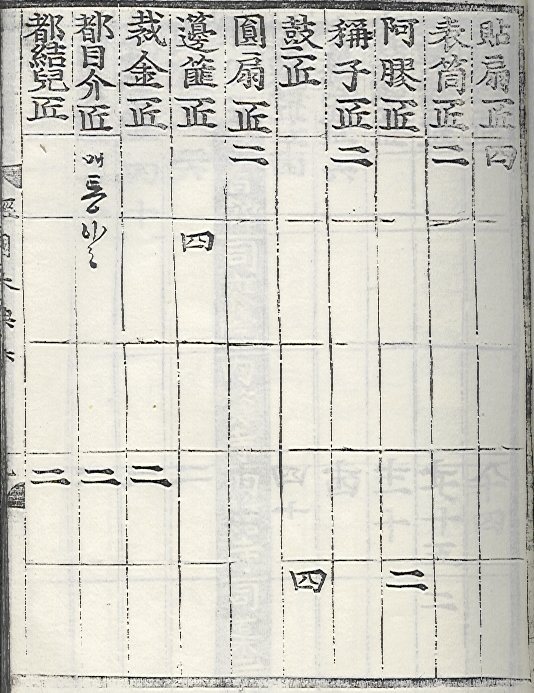 貼扇匠 四
表筒匠 二
阿膠匠 二
稱子匠 二
鼓匠 四
圓扇匠 二
邊篚匠 四
裁金匠 二
都目介匠 二
都結兒匠 二